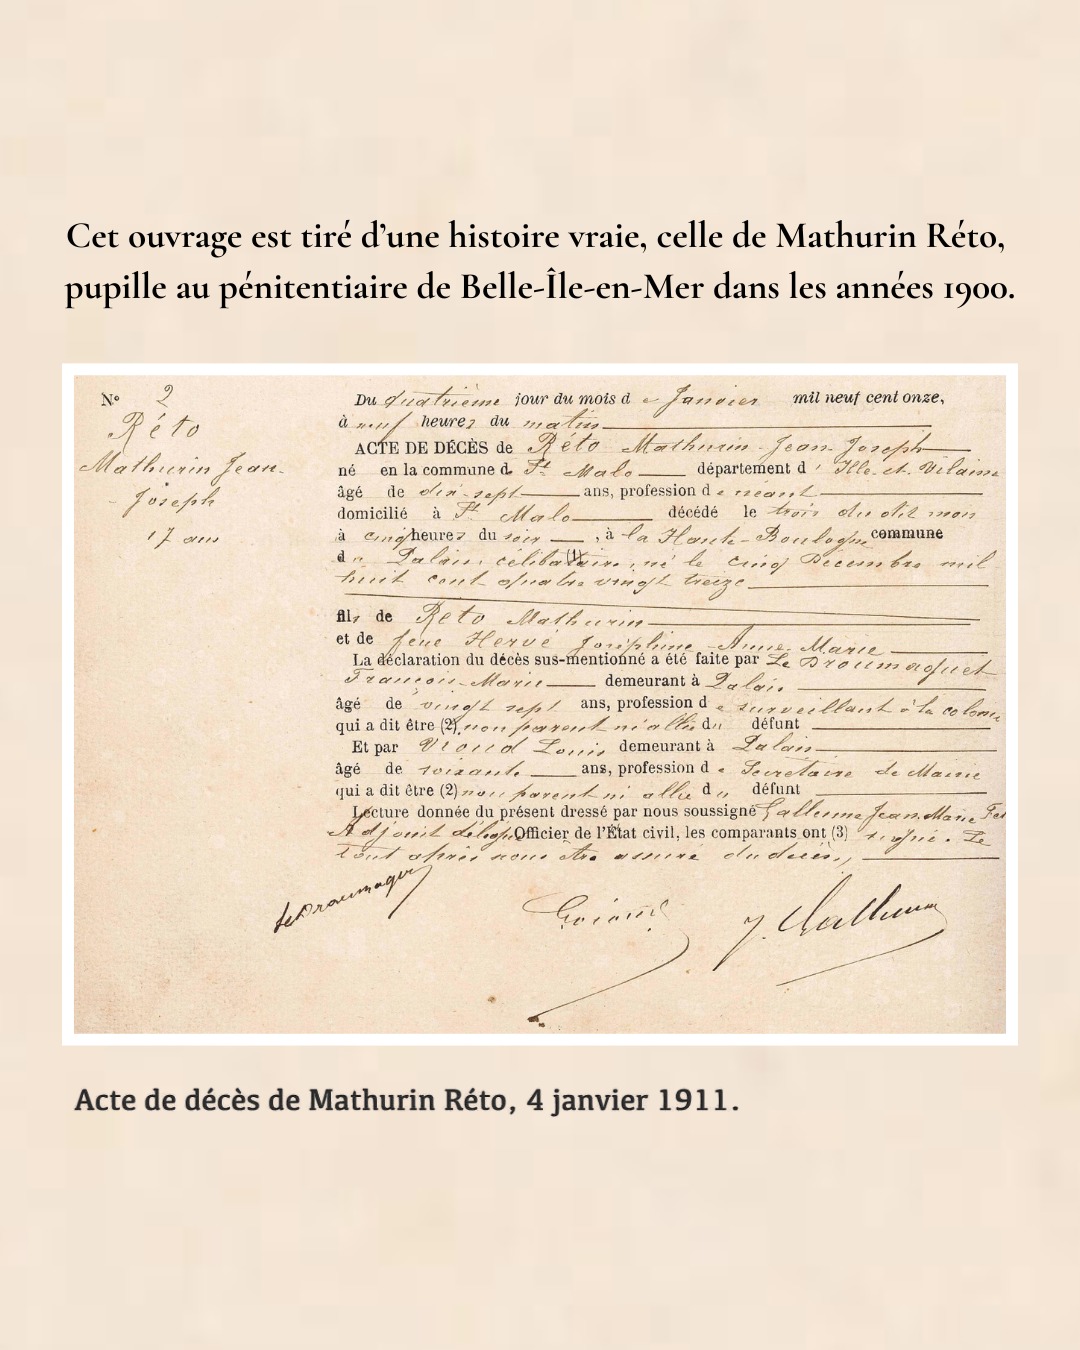 Cet ouvrage est tiré d’une histoire vraie, celle de Mathurin Réto,
pupille au pénitentiaire de Belle-Île-en-Mer dans les années 1900.
N° 2
Réto
Mathurin Jean-
Joseph
17 ans
Du quatrième jour du mois de Janvier mil neuf cent onze,
à neuf heures du matin
ACTE DE DÉCÈS de Réto Mathurin Jean Joseph
né en la commune de St Malo département d' Ille-et-Vilaine
âgé de dix-sept ans, profession de néant
domicilié à St Malo décédé le trois du dit mois
à cinq heures du soir, à la Haute-Boulogne commune
de Palais, célibataire, né le cinq Décembre mil
huit cent quatre vingt treize
fils de Réto Mathurin
et de feue Hervé Joséphine Anne Marie
La déclaration du décès sus-mentionné a été faite par Le Droumaguet
François-Marie demeurant à Palais
âgé de vingt sept ans, profession de surveillant à la colonie
qui a dit être (2) non parent ni allié du défunt
Et par Louis demeurant à Palais
âgé de soixante ans, profession de Secrétaire de Mairie
qui a dit être (2) non parent ni allié du défunt
Lecture donnée du présent dressé par nous soussigné Jean Marie
Adjoint délégué Officier de l’État civil, les comparants ont (3) signé. Le
tout après nous être assuré du décès,
Acte de décès de Mathurin Réto, 4 janvier 1911.